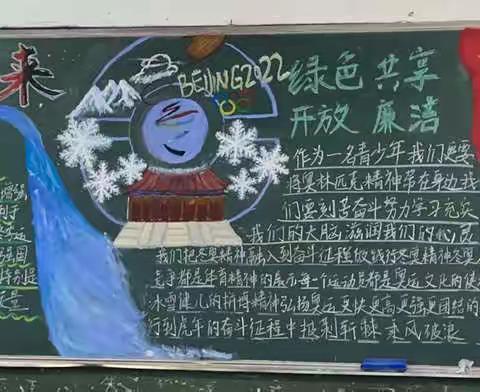 来
BEIJING2022
绿色 共享
开放 廉洁
作为一名青少年我们要
将奥林匹克精神带在身边我
们要刻苦奋斗努力学习充实
我们的大脑滋润我们的心灵
我们把冬奥精神融入到奋斗征程
都是体育精神的展示每个运动员都是奥运文化的使
冰雪健儿的拼搏精神弘扬奥运更快更高更强更团结的
行到虎年的奋斗征程中披荆斩棘 乘风破浪
增强
强国
特别是